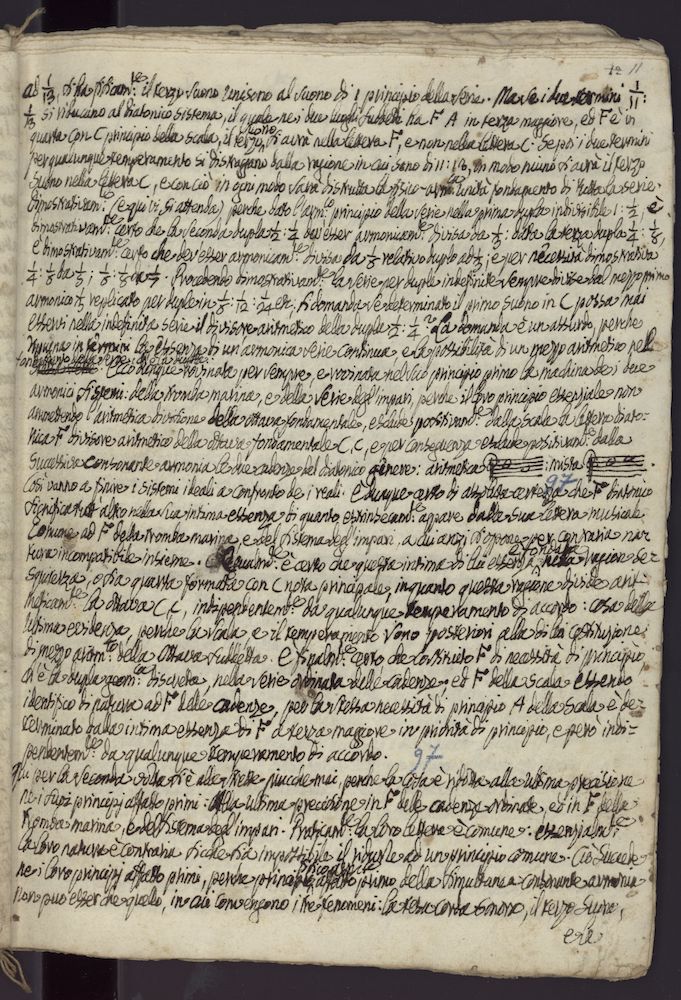 12 11
ad 1/13, si ha fisicam.te il terzo suono unisono al suono di 1 principio della serie. Ma se i due termini 1/11:
1/13 si riducano al diatonico sistema, il quale ne i due luoghi suddetti ha F A in terza maggiore, ed F è in
quarta con C principio della scala, il terzo suono si avrà nella lettera F, e non nella lettera C. Se poi i due termini
per qualunque temperamento si distraggano dalla ragione in cui sono di 11:13, in modo niuno si avrà il terzo
suono nella lettera C, e con ciò in ogni modo sarà distrutta la fisico-arm.ca unità fondamento di tutta la serie.
Dimostrativam.te (e qui si attenda) perché dato l'arm.co principio della serie nella prima dupla indivisibile 1:1/2, è
dimostrativam.te certo che la seconda dupla 1/2:1/4 dev'esser armonicam.te divisa da 1/3: data la terza dupla 1/4:1/8,
è dimostrativam.te certo che dev'esser armonicam.te divisa da 1/6 relativo duplo ad 1/3; e per necessità dimostrativa
armonico 1/3 replicato per duple in 1/6:1/12:1/24 etc, si domanda se determinato il primo suono in C possa mai
esservi nella indefinita serie il divisore aritmetico della dupla 1/2:1/4? La domanda è un assurdo, perché
in termini la essenza di un'armonica serie continua e la possibilità di un mezzo aritmetico nel
Ecco dunque rovinata per sempre, e rovinata nel suo principio primo la machina de i due
armonici sistemi della tromba marina, e della serie degl'impari, perché il loro principio essenziale non
ammettendo l'aritmetica divisione della ottava fondamentale, esclude positivam.te dalla scala la lettera diato-
nica F divisore aritmetico della ottava fondamentale C, C, e per conseguenza esclude positivam.te dalla
successiva consonante armonia le due cadenze del diatonico genere: aritmetica : mista .
Così vanno a finire i sistemi ideali a confronto de i reali. È dunque certo di assoluta certezza che F diatonico
97
significa tutt'altro nella sua intima essenza di quanto estrinsecam.te appare dalla sua lettera musicale
comune ad F della tromba marina, e del sistema degl'impari, a cui anzi si oppone per contraria na-
tura incompatibile insieme. Egualm.te è certo che questa intima di lui essenza è fondata nella ragion se-
squiterza, o sia quarta formata con C nota principale, inquanto questa ragione divide arit-
meticam.te la ottava C, C, indipendentem.te da qualunque temperamento di accordo: cosa della
ultima evidenza, perché la scala, e il temperamento sono posteriori alla di lui costituzione
di mezzo aritm.co della ottava suddetta. È finalm.te certo che costituito F di necessità di principio
ch'è la dupla geom.ca discreta nella serie ordinata delle cadenze; ed F della scala essendo
identifico di natura ad F delle cadenze, per la stessa necessità di principio A della scala è de-
terminato dalla intima essenza di F a terza maggiore in priorità di principio, e però indi-
pendentem.te da qualunque temperamento di accordo.
97
Qui per la seconda volta si è alle strette più che mai, perché la cosa è ridotta alla ultima precisione
ne i suoi principj affatto primi: alla ultima precisione in F delle cadenze ordinate, ed in F della
tromba marina, e del sistema degl'impari. Praticam.te la loro lettera è comune. Essenzialm.te
la loro natura è contraria sicché sia impossibile il ridurle ad un principio comune. Ciò succede
ne i loro principj affatto primi, perché principio fisico affatto primo della simultanea consonante armonia
non può esser che quello, in cui convengono i tre fenomeni: la tesa corda sonora, il terzo suono,
e la